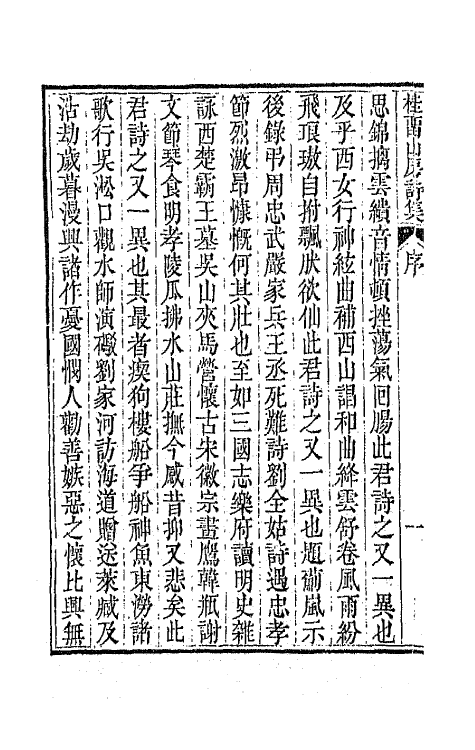 桂留山房詩集 序 一
思錦摛雲繢音情頓挫蕩氣回腸此君詩之又一異也
及乎西女行神絃曲補西山謌和曲絳雲舒卷風雨紛
飛琅璈自拊飄肰欲仙此君詩之又一異也題葡嵐示
後錄弔周忠武嚴家兵王丞死難詩劉全姑詩遇忠孝
節烈激昂慷慨何其壯也至如三國志樂府讀明史雜
詠西楚霸王墓吳山夾馬營懷古宋徽宗畫鷹韓瓶謝
文節琴食明孝陵瓜拂水山莊撫今感昔抑又悲矣此
君詩之又一異也其最者瘈狗樓船爭船神魚東勞諸
歌行吳淞口觀水師演礮劉家河訪海道贈送萊臧及
沾劫歲暮漫興諸作憂國憫人勸善嫉惡之懷比興無